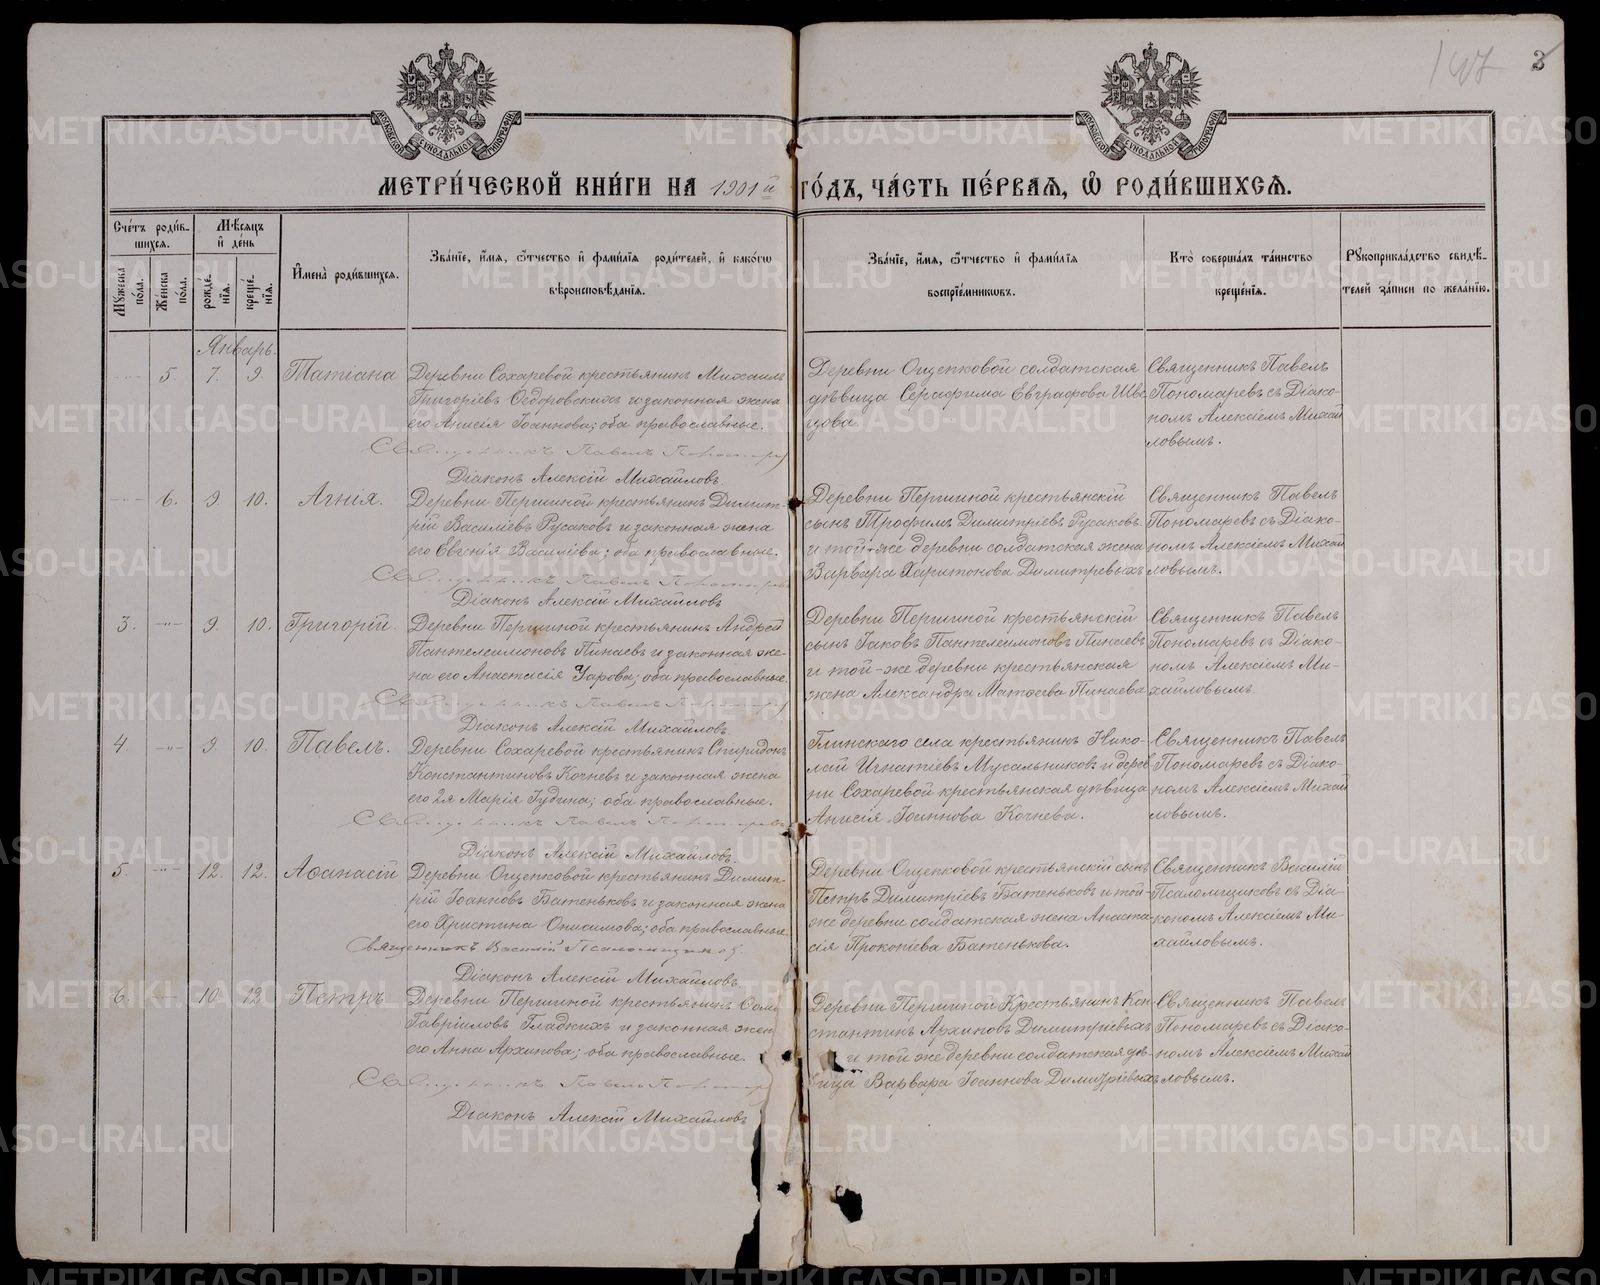 3
МЕТРИ́ЧЕСКОЙ КНИ́ГИ НА 1901й ГО́ДЪ, ЧА́СТЬ ПЕ́РВАЯ, Ѡ РОДИ́ВШИХСЯ.
Сче́тъ роди́в-
шихся.
Мѣ́сяцъ
и҆ де́нь
Мꙋ́жеска по́ла.
Же́нска по́ла.
рожде́-
нїя.
креще́-
нїя.
И҆мена̀ роди́вшихся.
Зва́нїе, и҆́мя, ѻ҆́тчество и҆ фами́лїя роди́телей, и҆ како́гѡ
вѣроисповѣ́данїя.
Зва́нїе, и҆́мя, ѻ҆́тчество и҆ фами́лїя
воспрїе́мникѡвъ.
Кто̀ соверша́лъ та́инство
креще́нїя.
Рꙋкоприкла́дство свидѣ́-
телей за́писи по жела́нїю.
Январь.
5. 7. 9. Татіана
Деревни Сохаревой крестьянинъ Михаилъ
Григоріевъ Ѳедоровскихъ и законная жена
его Анисія Іоаннова; оба православные.
Священникъ Павелъ Пономаревъ
Діаконъ Алексій Михайловъ
Деревни Ощепковой солдатская
дѣвица Серафима Евграфова Шве
цова.
Священникъ Павелъ
Пономаревъ съ Діако-
номъ Алексіемъ Михай
ловымъ.
6. 9. 10. Агнія.
Деревни Першиной крестьянинъ Димит-
рій Василіевъ Русаковъ и законная жена
его Евгенія Василіева; оба православные.
Священникъ Павелъ Пономаревъ
Діаконъ Алексій Михайловъ
Деревни Першиной крестьянскій
сынъ Трофимъ Димитріевъ Русаковъ.
и той-же деревни солдатская жена
Варвара Харитонова Димитревыхъ
Священникъ Павелъ
Пономаревъ съ Діако-
номъ Алексіемъ Михай
ловымъ.
3. -"- 9. 10. Григорій.
Деревни Першиной крестьянинъ Андрей
Пантелеимоновъ Пинаевъ и законная же-
на его Анастасія Уарова; оба православные.
Священникъ Павелъ Пономаревъ
Діаконъ Алексій Михайловъ.
Деревни Першиной крестьянскій
сынъ Іаковъ Пантелеимоновъ Пинаевъ
и той-же деревни крестьянская
жена Александра Матѳеева Пинаева
Священникъ Павелъ
Пономаревъ съ Діако-
номъ Алексіемъ Ми-
хайловымъ.
4. -"- 9. 10. Павелъ.
Деревни Сохаревой крестьянинъ Спиридонъ
Константиновъ Кочневъ и законная жена
его 2я Марія Іудина; оба православные.
Священникъ Павелъ Пономаревъ
Діаконъ Алексій Михайловъ.
Глинскаго села крестьянинъ Нико-
лай Игнатіевъ Мусальниковъ и дерев
ни Сохаревой крестьянская дѣвица
Анисія Іоаннова Кочнева.
Священникъ Павелъ
Пономаревъ съ Діако-
номъ Алексіемъ Михай
ловымъ.
5. -"- 12. 12. Аѳанасій
Деревни Ощепковой крестьянинъ Димит-
рій Іоанновъ Батеньковъ и законная жена
его Христина Онисимова; оба православные.
Священникъ Василій Псаломщиковъ.
Діаконъ Алексій Михайловъ.
Деревни Ощепковой крестьянскій сынъ
Петръ Димитріевъ Батеньковъ и той-
же деревни солдатская жена Анаста
сія Прокопіева Батенькова.
Священникъ Василій
Псаломщиковъ съ Діа-
кономъ Алексіемъ Ми-
хайловымъ.
6. 10 12 Петръ
Деревни Першиной крестьянинъ
Гавріиловъ Гладкихъ и законная жен
его Анна Архипова; оба православные.
Священникъ Павелъ Пономаревъ
Діаконъ Алексій Михайловъ
Деревни Першиной Крестьянинъ Кон
стантинъ Архиповъ Димитріевыхъ
и той же деревни солдатская дѣ-
вица Варвара Іоаннова Димитріевыхъ
Священникъ Павелъ
Пономаревъ съ Діако-
номъ Алексіемъ Михай
ловымъ.
METRIKI.GASO-URAL.RU